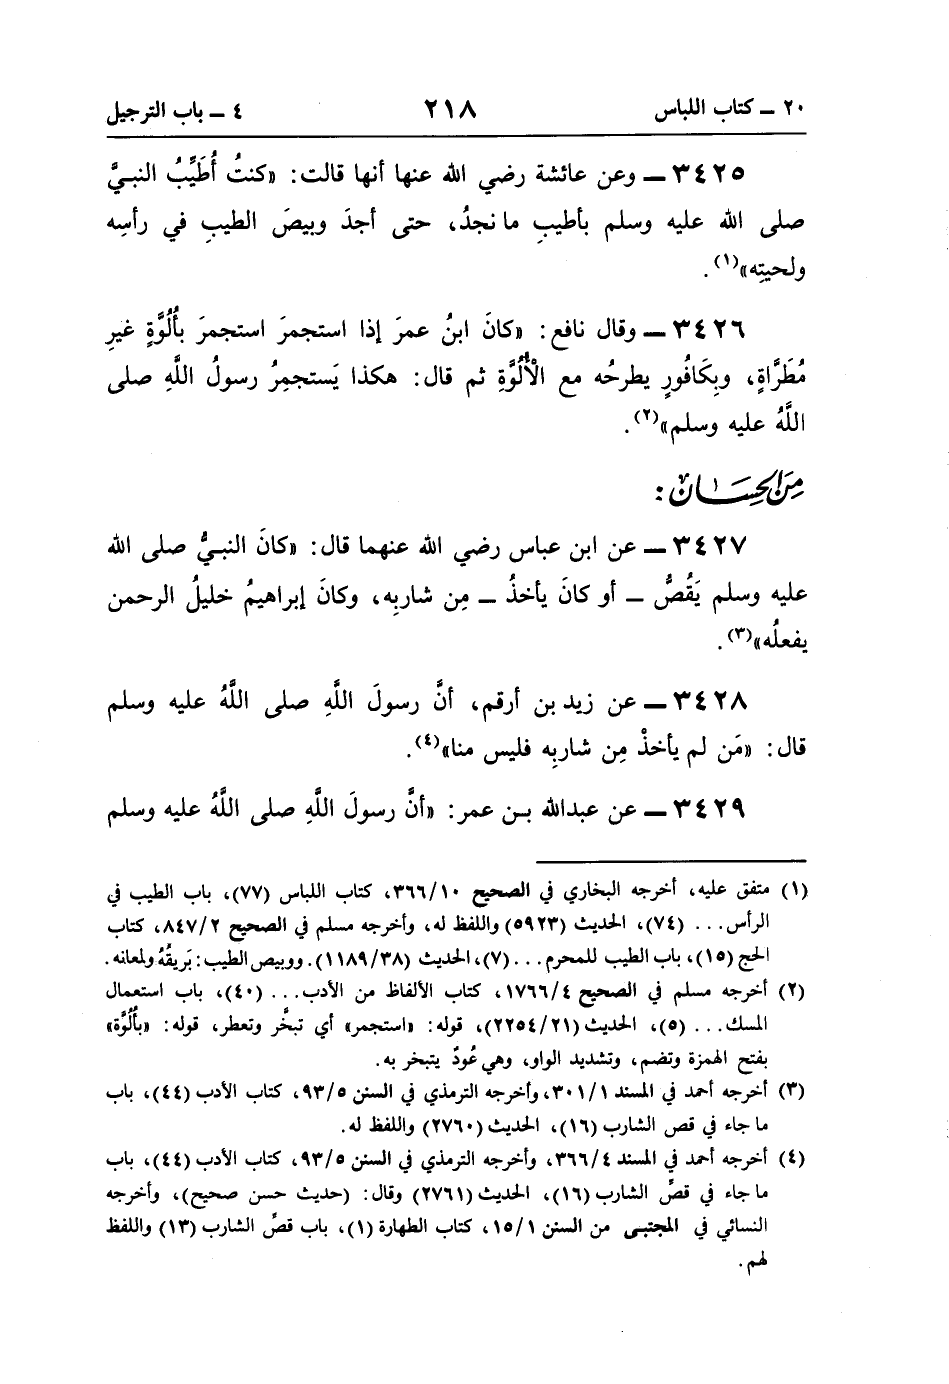 ٢٠ ــ كتاب اللباس ٢١٨ ٤ ــ باب الترجيل
٣٤٢٥ ــ وعن عائشة رضي الله عنها أنها قالت: «كنتُ أُطَيِّبُ النبيَّ
صلى الله عليه وسلم بأطيبِ ما نجدُ، حتى أجدَ وبيصَ الطيبِ في رأسِه
ولحيتِه»(١).
٣٤٢٦ ــ وقال نافع: «كانَ ابنُ عمرَ إذا استجمرَ استجمرَ بأُلُوَّةٍ غيرِ
مُطَرَّاةٍ، وبِكَافُورٍ يطرحُه مع الْأُلُوَّةِ ثم قال: هكذا يَستجمِرُ رسولُ اللَّهِ صلى
اللَّهُ عليه وسلم»(٢).
مِنَ الحِسَان:
٣٤٢٧ ــ عن ابن عباس رضي الله عنهما قال: «كانَ النبيُّ صلى الله
عليه وسلم يَقُصُّ ــ أو كانَ يأخذُ ــ مِن شاربِه، وكانَ إبراهيمُ خليلُ الرحمن
يفعلُه»(٣).
٣٤٢٨ ــ عن زيد بن أرقم، أنَّ رسولَ اللَّهِ صلى اللَّهُ عليه وسلم
قال: «مَن لم يأخذْ مِن شاربِه فليس منا»(٤).
٣٤٢٩ ــ عن عبدالله بن عمر: «أنَّ رسولَ اللَّهِ صلى اللَّهُ عليه وسلم
(١) متفق عليه، أخرجه البخاري في الصحيح ٣٦٦/١٠، كتاب اللباس (٧٧)، باب الطيب في
الرأس... (٧٤)، الحديث (٥٩٢٣) واللفظ له، وأخرجه مسلم في الصحيح ٨٤٧/٢، كتاب
الحج (١٥)، باب الطيب للمحرم... (٧)، الحديث (١١٨٩/٣٨). ووبيص الطيب: بَريقُهُ ولمعانه.
(٢) أخرجه مسلم في الصحيح ١٧٦٦/٤، كتاب الألفاظ من الأدب... (٤٠)، باب استعمال
المسك... (٥)، الحديث (٢٢٥٤/٢١)، قوله: «استجمر» أي تبخَّر وتعطر، قوله: «بأُلُوَّة»
بفتح الهمزة وتضم، وتشديد الواو، وهي عُودٌ يتبخر به.
(٣) أخرجه أحمد في المسند ٣٠١/١، وأخرجه الترمذي في السنن ٩٣/٥، كتاب الأدب (٤٤)، باب
ما جاء في قص الشارب (١٦)، الحديث (٢٧٦٠) واللفظ له.
(٤) أخرجه أحمد في المسند ٣٦٦/٤، وأخرجه الترمذي في السنن ٩٣/٥، كتاب الأدب (٤٤)، باب
ما جاء في قصِّ الشارب (١٦)، الحديث (٢٧٦١) وقال: (حديث حسن صحيح)، وأخرجه
النسائي في المجتبى من السنن ١٥/١، كتاب الطهارة (١)، باب قصِّ الشارب (١٣) واللفظ
لهم.